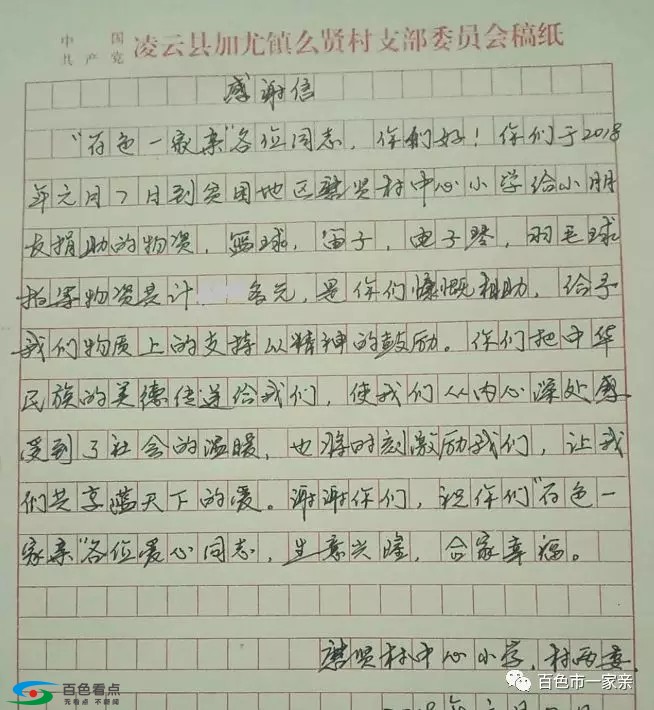 中国
共产党 凌云县加尤镇么贤村支部委员会稿纸
感谢信
“百色一家亲”各位同志,你们好!你们于2018
年元月7日到贫困地区磨贤村中心小学给小朋
友捐助的物资,篮球,笛子,电子琴,羽毛球
拍等物资共计 多元,是你们慷慨相助,给予
我们物质上的支持以精神的鼓励。你们把中华
民族的美德传递给我们,使我们从内心深处感
受到了社会的温暖,也将时刻激励我们,让我
们共享蓝天下的爱。谢谢你们,祝你们“百色一
家亲”各位爱心同志,生意兴隆,合家幸福。
磨贤村中心小学,村两委
百色看点
百色市一家亲